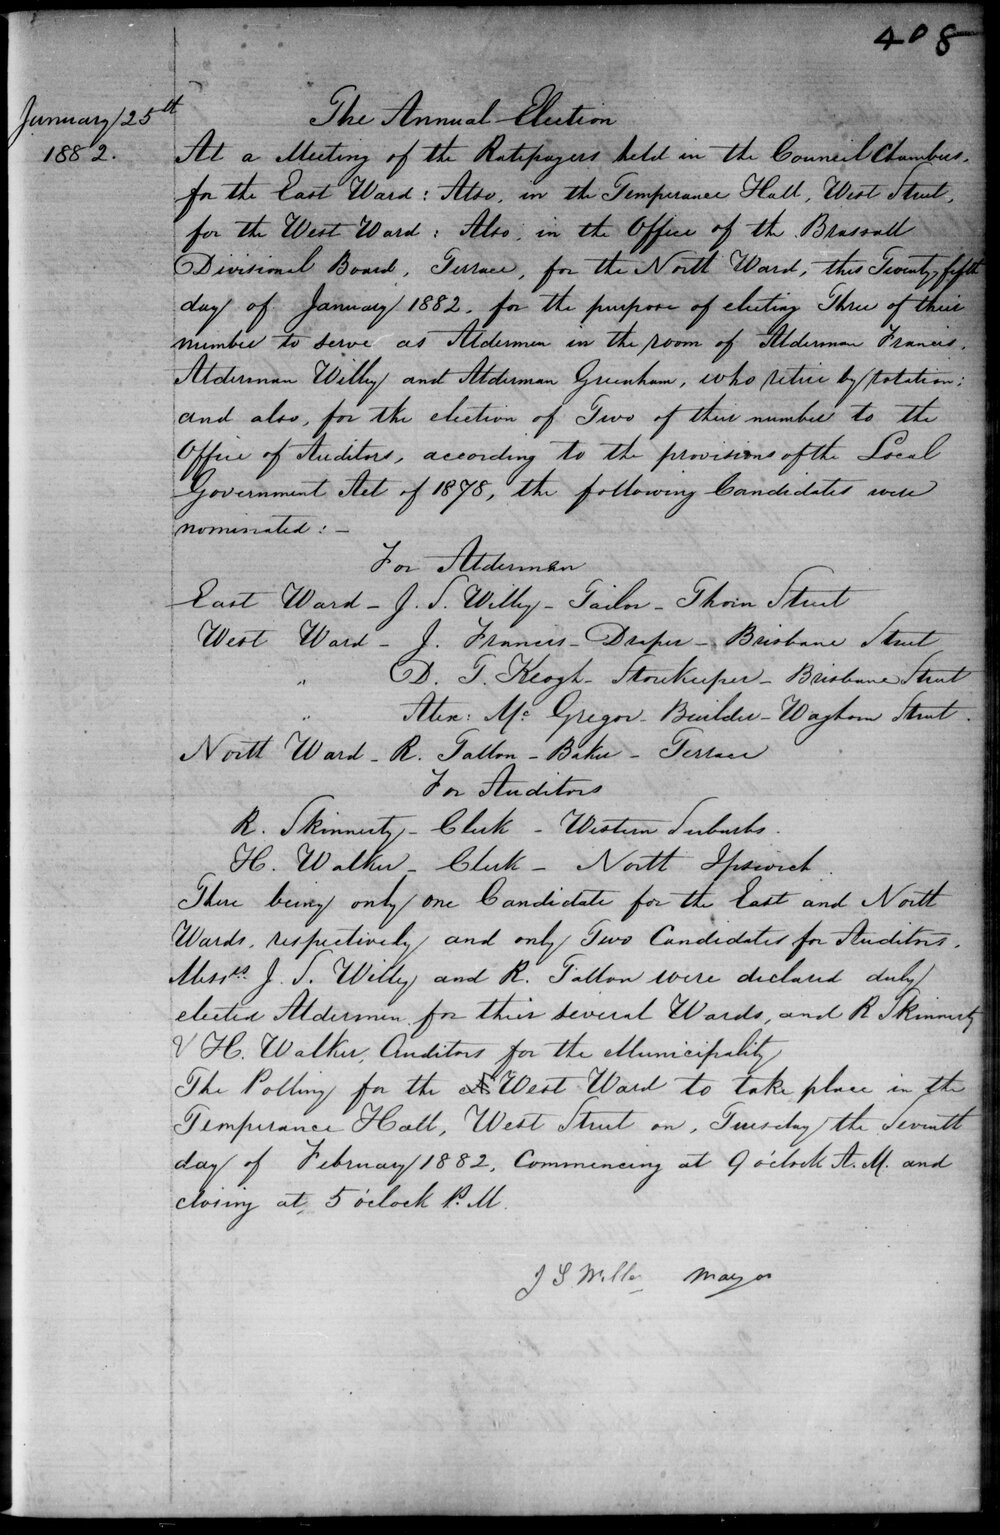 408
January 25th
1882.
The Annual Election
At a Meeting of the Ratepayers held in the Council Chambers,
for the East Ward: Also, in the Temperance Hall, West Street,
for the West Ward: Also, in the Office of the Brassall
Divisional Board, Terrace, for the North Ward, this Twenty-fifth
day of January 1882, for the purpose of electing Three of their
number to serve as Aldermen in the room of Alderman Francis,
Alderman Willey and Alderman Greenham, who retire by rotation:
and also, for the election of Two of their number to the
Office of Auditors, according to the provisions of the Local
Government Act of 1878, the following Candidates were
nominated: -
For Alderman
East Ward - J. S. Willey - Tailor - Thorn Street
West Ward - J. Francis - Draper - Brisbane Street
" D. T. Keogh - Storekeeper - Brisbane Street
" Alex: Mc Gregor - Builder - Waghorn Street.
North Ward - R. Tallon - Baker - Terrace
For Auditors
R. Skinnerty - Clerk - Western Suburbs.
H. Walker - Clerk - North Ipswich.
There being only one Candidate for the East and North
Wards, respectively and only Two Candidates for Auditors,
Messrs. J. S. Willey and R. Tallon were declared duly
elected Aldermen for their several Wards, and R Skinnerty
& H. Walker, Auditors for the Municipality
The Polling for the West Ward to take place in the
Temperance Hall, West Street on, Tuesday the Seventh
day of February 1882, Commencing at 9 o'clock A.M. and
closing at 5 o'clock P.M.
J S Willey Mayor